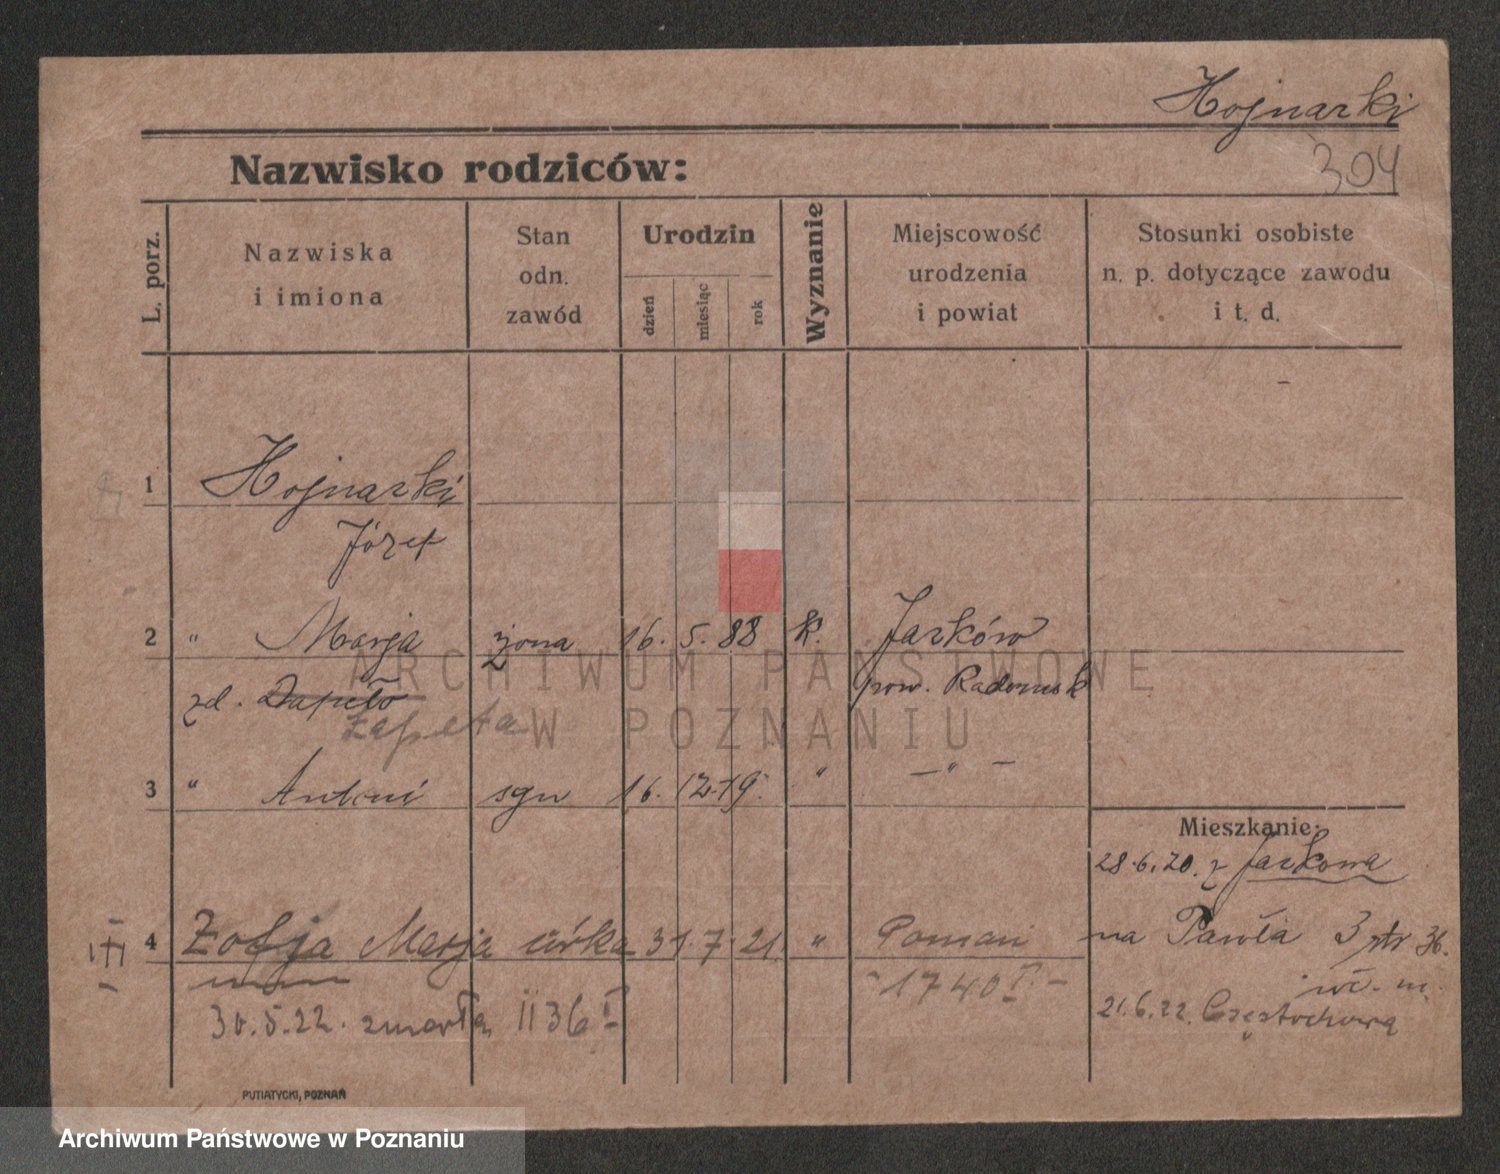 Hojnarki
304
Nazwisko rodziców:
L. porz.
Nazwiska
i imiona
Stan
odn.
zawód
Urodzin
dzień
miesiąc
rok
Wyznanie
Miejscowość
urodzenia
i powiat
Stosunki osobiste
n. p. dotyczące zawodu
i t. d.
1 Hojnarki
Józef
2 " Marja żona 16. 5. 88 k. Jarków
zd. pow. Radomsk
Zapeta
3 " Antoni syn 16. 12. 19. " — " —
Mieszkanie:
28.6.20. z Jarkowa
4 Zofja Marja córka 31. 7. 21 " Poznań
na Pawła 3 ptr 36.
- 1740 I -
30.5.22. zmarła 1136 I -
21.6.22. Częstochowa
PUTIATYCKI, POZNAŃ
ARCHIWUM PAŃSTWOWE
W POZNANIU
Archiwum Państwowe w Poznaniu